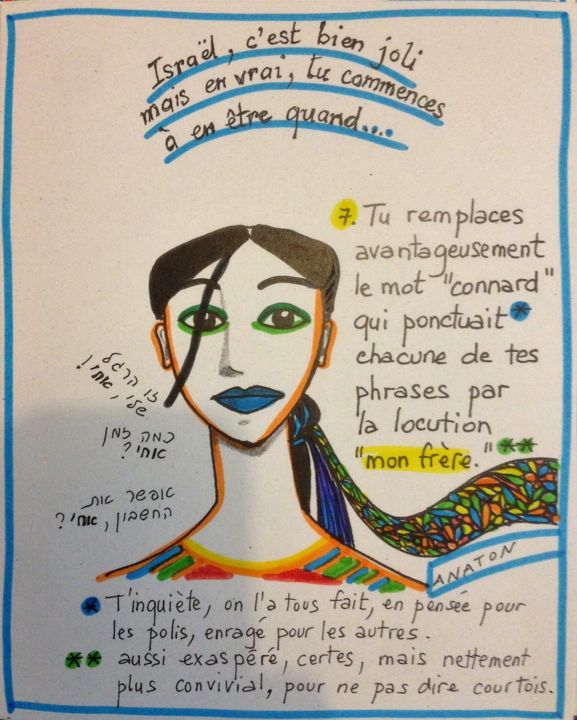 Israël, c'est bien joli
mais en vrai, tu commences
à en être quand....
7. Tu remplaces
avantageusement
le mot "connard"
qui ponctuait *
chacune de tes
phrases par
la locution
"mon frère." **
זו הרגל
שלי, אחי!
כמה זמן
אחי?
אפשר את
החשבון, אחי?
ANATON
* T'inquiète, on l'a tous fait, en pensée pour
les polis, enragé pour les autres.
** aussi exaspéré, certes, mais nettement
plus convivial, pour ne pas dire courtois.